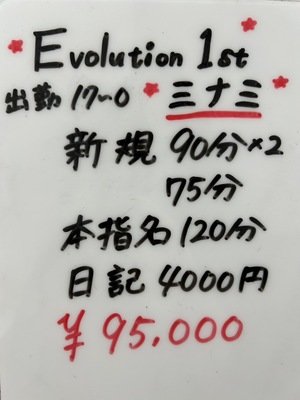 Evolution 1st
出勤 17~0 三ナ三
新規 90分×2
75分
本指名 120分
日記 4000円
¥95.000